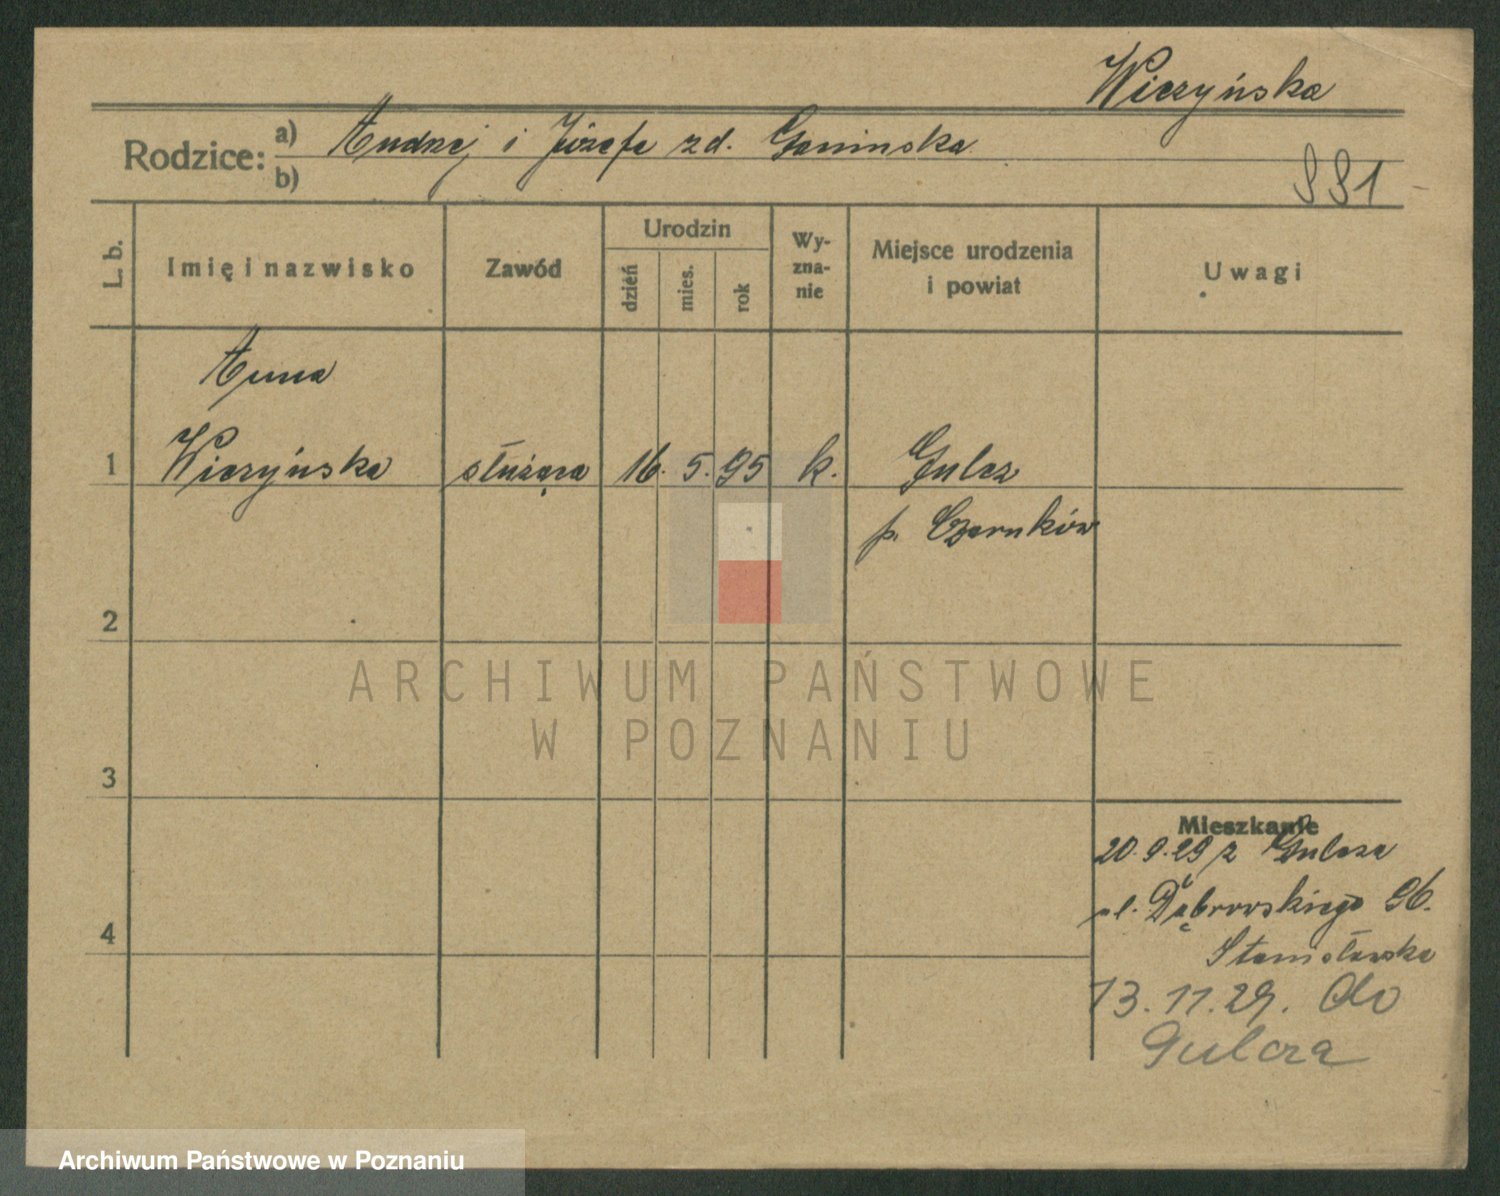 Wiczyńska
Rodzice: a) Andrzej i Józefa zd.
b)
991
L. b. Imię i nazwisko Zawód Urodzin dzień mies. rok Wy-zna-nie Miejsce urodzenia i powiat Uwagi
Anna
1 Wiczyńska służąca 16. 5. 95 k. Gulcz
p. Czarnków
2
ARCHIWUM PAŃSTWOWE
W POZNANIU
3
Mieszkanie
20.9.29 z Gulcza
4 ul. Dąbrowskiego 96.
13.11.29. do
Gulcza
Archiwum Państwowe w Poznaniu